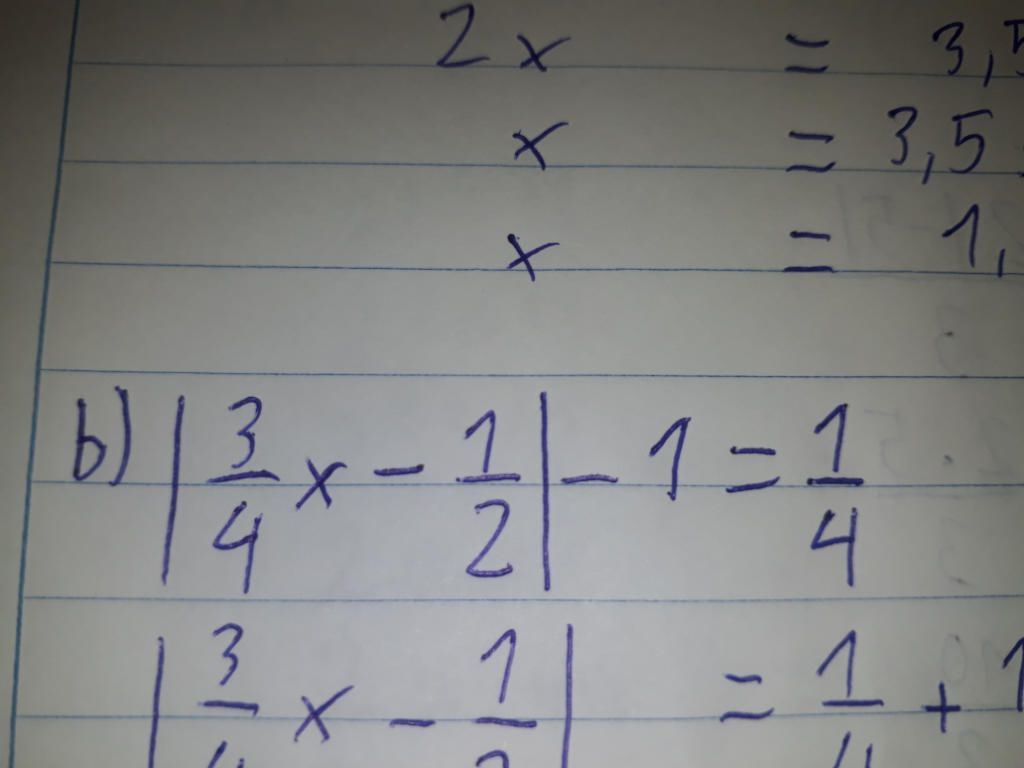 2x = 3,5
x = 3,5
x = 1,
b) |3/4 x - 1/2| - 1 = 1/4
|3/4 x - 1/2| = 1/4 + 1